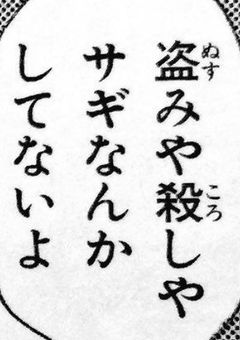 盗みや殺しや
サギなんか
してないよ